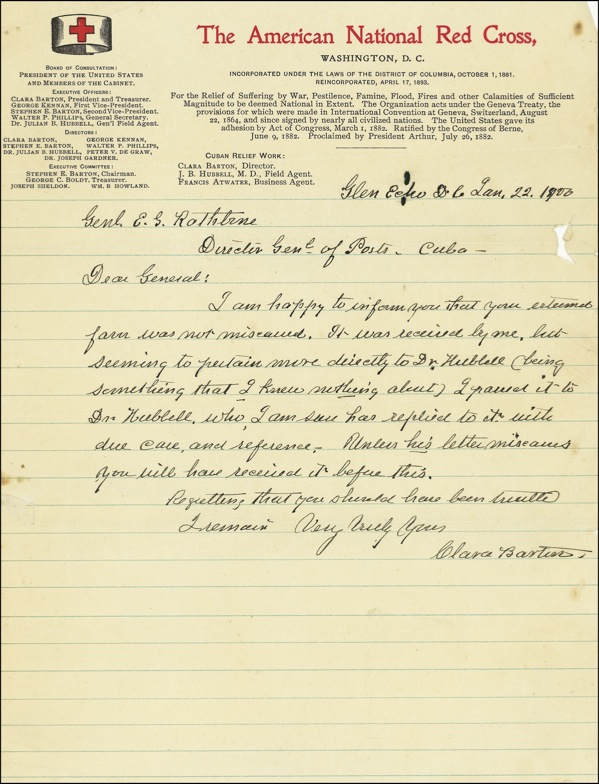 The American National Red Cross,
WASHINGTON, D. C.
INCORPORATED UNDER THE LAWS OF THE DISTRICT OF COLUMBIA, OCTOBER 1, 1881.
REINCORPORATED, APRIL 17, 1893.
For the Relief of Suffering by War, Pestilence, Famine, Flood, Fires and other Calamities of Sufficient
Magnitude to be deemed National in Extent. The Organization acts under the Geneva Treaty, the
provisions for which were made in International Convention at Geneva, Switzerland, August
22, 1864, and since signed by nearly all civilized nations. The United States gave its
adhesion by Act of Congress, March 1, 1882. Ratified by the Congress of Berne,
June 9, 1882. Proclaimed by President Arthur, July 26, 1882.
BOARD OF CONSULTATION:
PRESIDENT OF THE UNITED STATES
AND MEMBERS OF THE CABINET.
EXECUTIVE OFFICERS:
CLARA BARTON, President and Treasurer.
GEORGE KENNAN, First Vice-President.
STEPHEN E. BARTON, Second Vice-President.
WALTER P. PHILLIPS, General Secretary.
DR. JULIAN B. HUBBELL, Gen'l Field Agent.
DIRECTORS:
CLARA BARTON, GEORGE KENNAN,
STEPHEN E. BARTON, WALTER P. PHILLIPS,
DR. JULIAN B. HUBBELL, PETER V. DE GRAW,
DR. JOSEPH GARDNER.
EXECUTIVE COMMITTEE:
STEPHEN E. BARTON, Chairman.
GEORGE C. BOLDT, Treasurer.
JOSEPH SHELDON. WM. B HOWLAND.
CUBAN RELIEF WORK:
CLARA BARTON, Director.
J. B. HUBBELL, M. D., Field Agent.
FRANCIS ATWATER, Business Agent.
Glen Echo D C Jan, 22. 1900
Genl. E. G. Rathbone
Director Genl. of Posts - Cuba -
Dear General:
I am happy to inform you that your esteemed
favor was not miscarried. It was received by me, but
seeming to pertain more directly to Dr Hubbell (being
something that I knew nothing about) I passed it to
Dr. Hubbell, who, I am sure has replied to it with
due care, and reference. Unless his letter miscarries
you will have received it before this.
Regretting that you should have been troubled
I remain Very truly yours
Clara Barton.